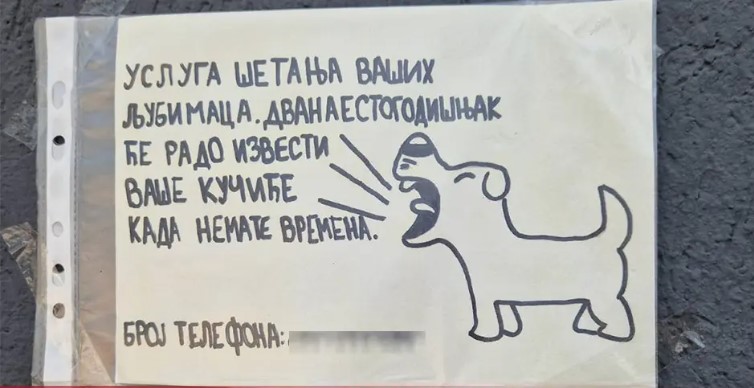 УСЛУГА ШЕТАЊА ВАШИХ
ЉУБИМАЦА. ДВАНАЕСТОГОДИШЊАК
ЋЕ РАДО ИЗВЕСТИ
ВАШЕ КУЧИЋЕ
КАДА НЕМАТЕ ВРЕМЕНА.
БРОЈ ТЕЛЕФОНА: